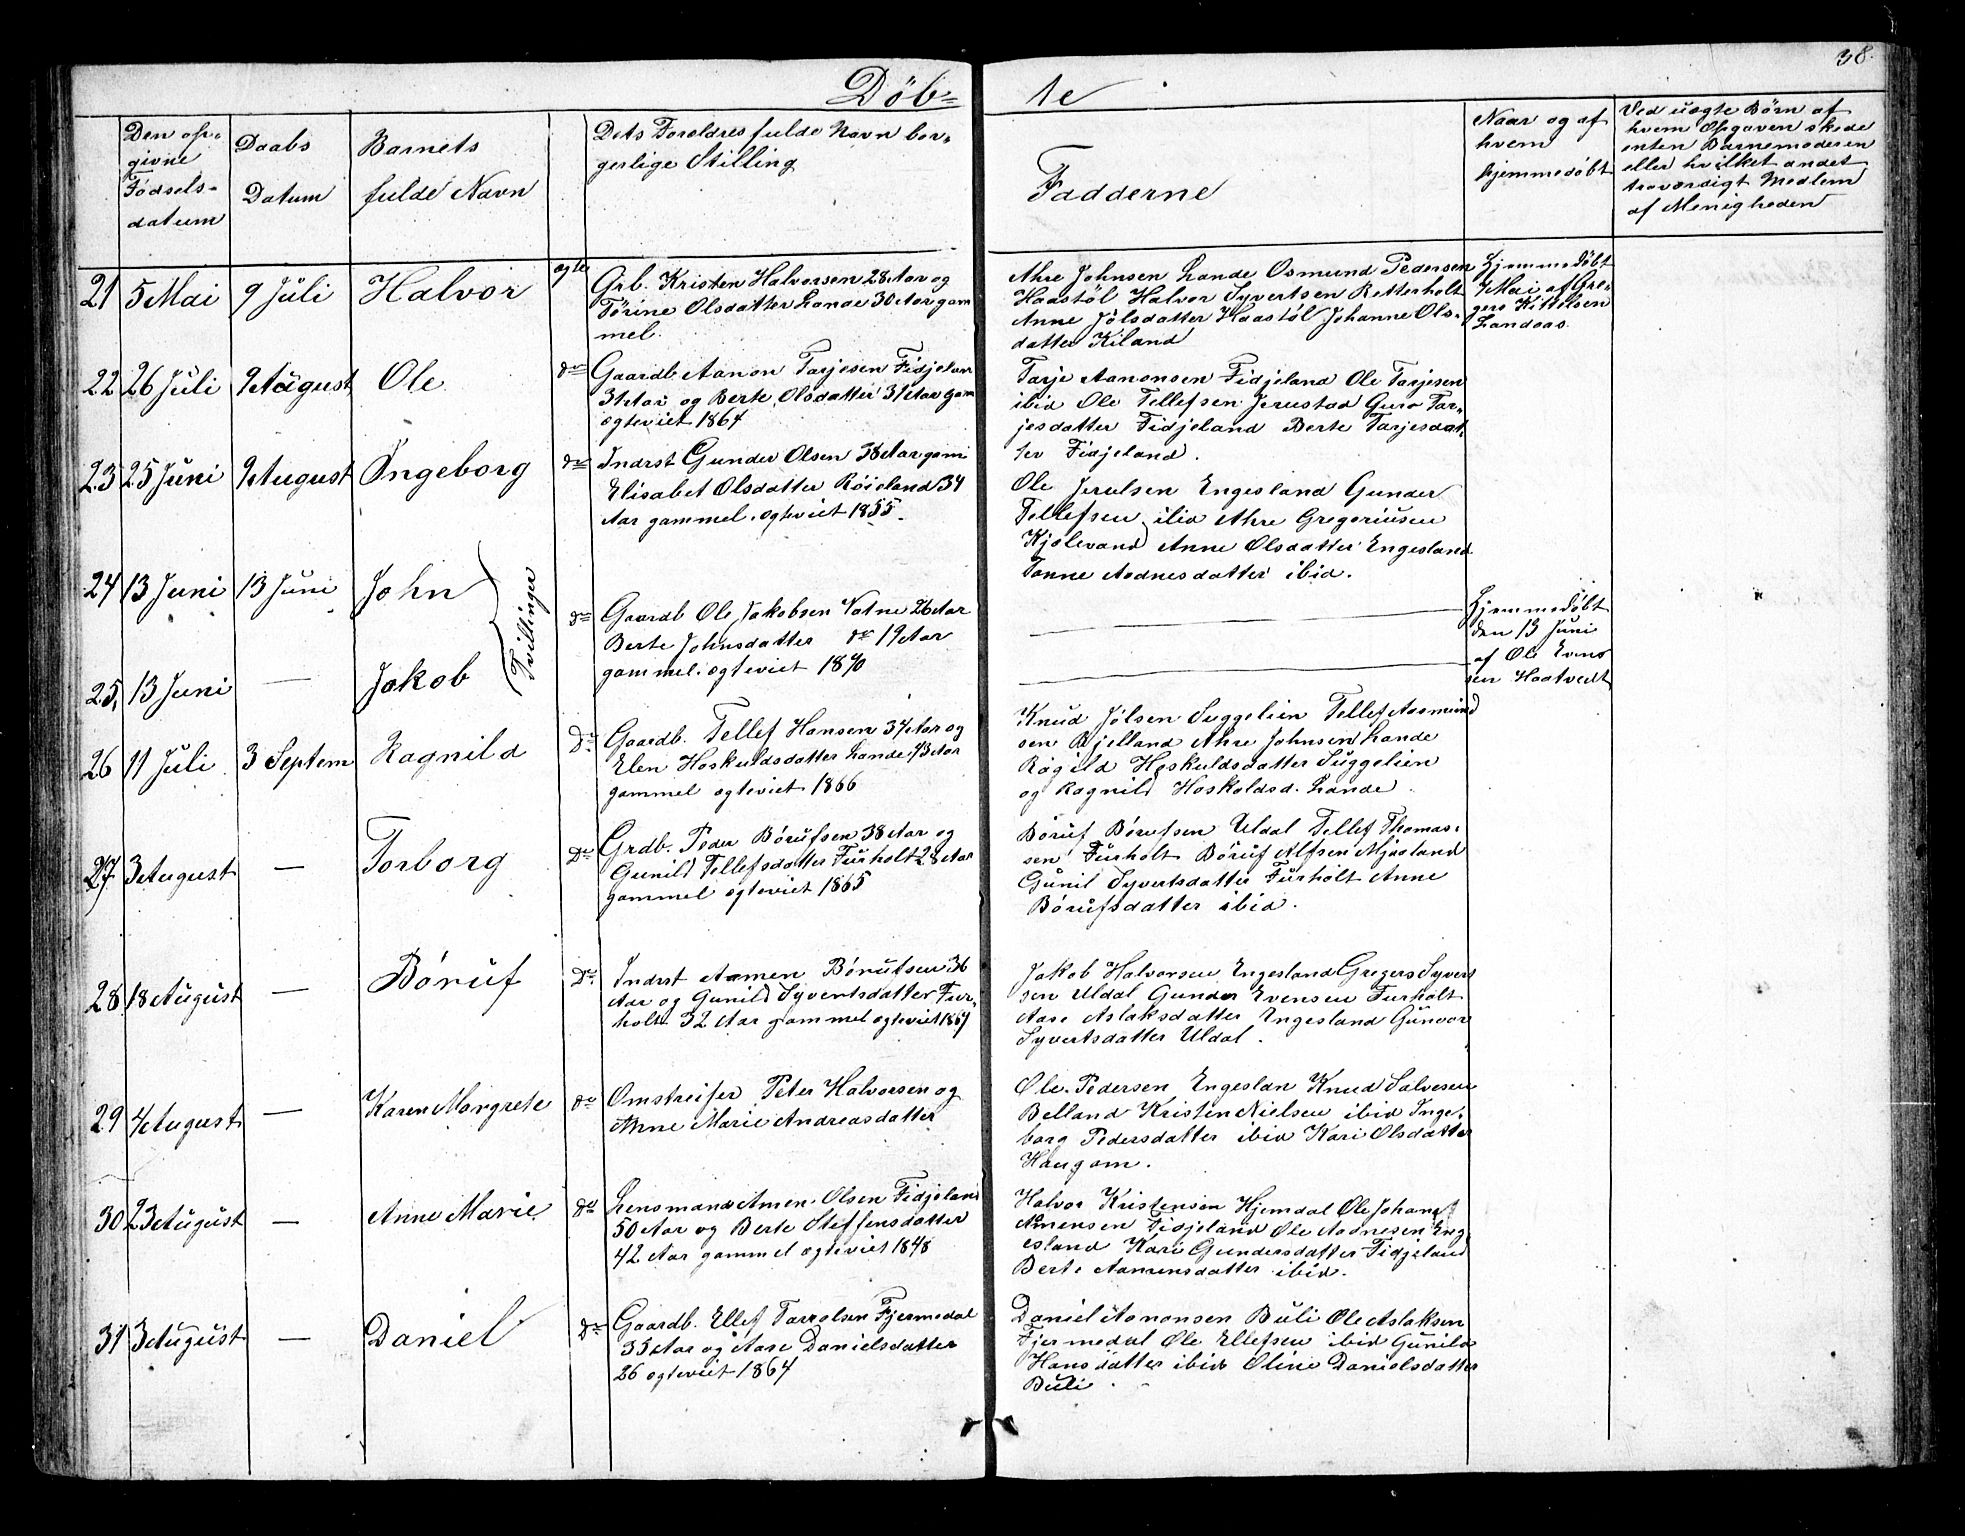 38.
Döb= te
Den op-
givne
Fødsels-
datum
Daabs
Datum
Barnets
fulde Navn
Dets Foreldres fulde Navn bor-
gerlige Stilling
Fadderne
Naar og af
hvem
hjemmedøbt
Ved uægte Børn af
hvem Opgaven skede
enten Barnemoderen
eller hvilket andet
troværdigt Medlem
af Menigheden
21 5 Mai 9 Juli Halvor ægte
Grb. Kristen Halvorsen 28 Aar og
Tørine Olsdatter Lande 30 Aar gam
mel.
Ahre Johnsen Lande Osmund Pedersen
Haastøl Halvor Syvertsen Retterholt
Anne Jølsdatter Haastøl Johanne Ols-
datter Kiland
Hjemmedøbt
Mai af Gre-
gers Kittelsen
Landaas
22 26 Juli 9 August Ole do
Gaardb Aanon Tarjesen Fidjelan
31 Aar og Berte Olsdatter 31 Aar gam
ægteviet 1864
Tarje Aanonsen Fidjeland Ole Tarjesen
ibid Ole Tellefsen Jerustad Guro Tar-
jesdatter Fidjeland Berte Tarjesdat-
ter Fidjeland.
23 25 Juni 9 August Ingeborg do
Indrst Gunder Olsen 38 Aar gam
Elisabet Olsdatter Röieland 34
Aar gammel. ægteviet 1855.
Ole Jerulsen Engesland Gunder
Tellefsen ibid Ahre Gregeriusen
Kjølevand Anne Olsdatter Engesland
Tonne Aadnesdatter ibid.
24 13 Juni 13 Juni John
Tvillinger
do
Gaardb Ole Jakobsen Vatne 26 Aar
Berte Johnsdatter do 19 Aar
gammel. ægteviet 1870
Hjemmedøbt
den 13 Juni
af Ole Evens
sen Haatvedt
25, 13 Juni — Jakob
26 11 Juli 3 Septem Ragnild Do
Gaardb. Tellef Hansen 34 Aar og
Elen Hoskuldsdatter Lande 43 Aar
gammel ægteviet 1866
Knud Jølsen Suggelien Tellef Aasmund
sen Bjelland Ahre Johnsen Lande
Ragild Hoskuldsdatter Suggelien
og Ragnild Hoskoldsd. Lande.
27 3 August — Torborg Do
Grdb. Peder Børufsen 38 Aar og
Gunild Tellefsdatter Furholt 28 Aar
gammel ægteviet 1865
Børuf Børufsen Uldal Tellef Thomas-
sen Furholt Børuf Alfsen Mjaaland
Gunil Syvertsdatter Furholt Anne
Børufsdatter ibid.
28 18 August — Børuf Do
Indrst Aamen Børufsen 36
Aar og Gunild Syvertsdatter Fur-
holt 32 Aar gammel ægteviet 1867
Jakob Halvorsen Engesland Gregers Syvert
sen Uldal Gunder Evensen Furholt
Aase Aslaksdatter Engesland Gunvor
Syvertsdatter Uldal.
29 4 August — Karen Margrete do
Omstreifer Peter Halvorsen og
Anne Marie Andreasdatter
Ole Pedersen Engeslan Knud Salvesen
Belland Kristen Nielsen ibid Inge-
borg Pedersdatter ibid Kari Olsdatter
Haugom.
30 23 August — Anne Marie do
Lensmand Amen Olsen Fidjelan
50 Aar og Berte Steffensdatter
42 Aar gammel ægteviet 1848
Halvor Kristensen Hjemdal Ole Johan
Amensen Fidjeland Ole Aadnesen Eng
esland Kari Gundersdatter Fidjeland
Berte Aamensdatter ibid.
31 3 August — Daniel Do
Gaardb. Ellef Tarralsen Fjermedal
35 Aar og Aase Danielsdatter
26 ægteviet 1864
Daniel Aanonsen Buli Ole Aslaksen
Fjermedal Ole Ellefsen ibid Gunild
Hansdatter ibid Oline Danielsdatter
Buli.